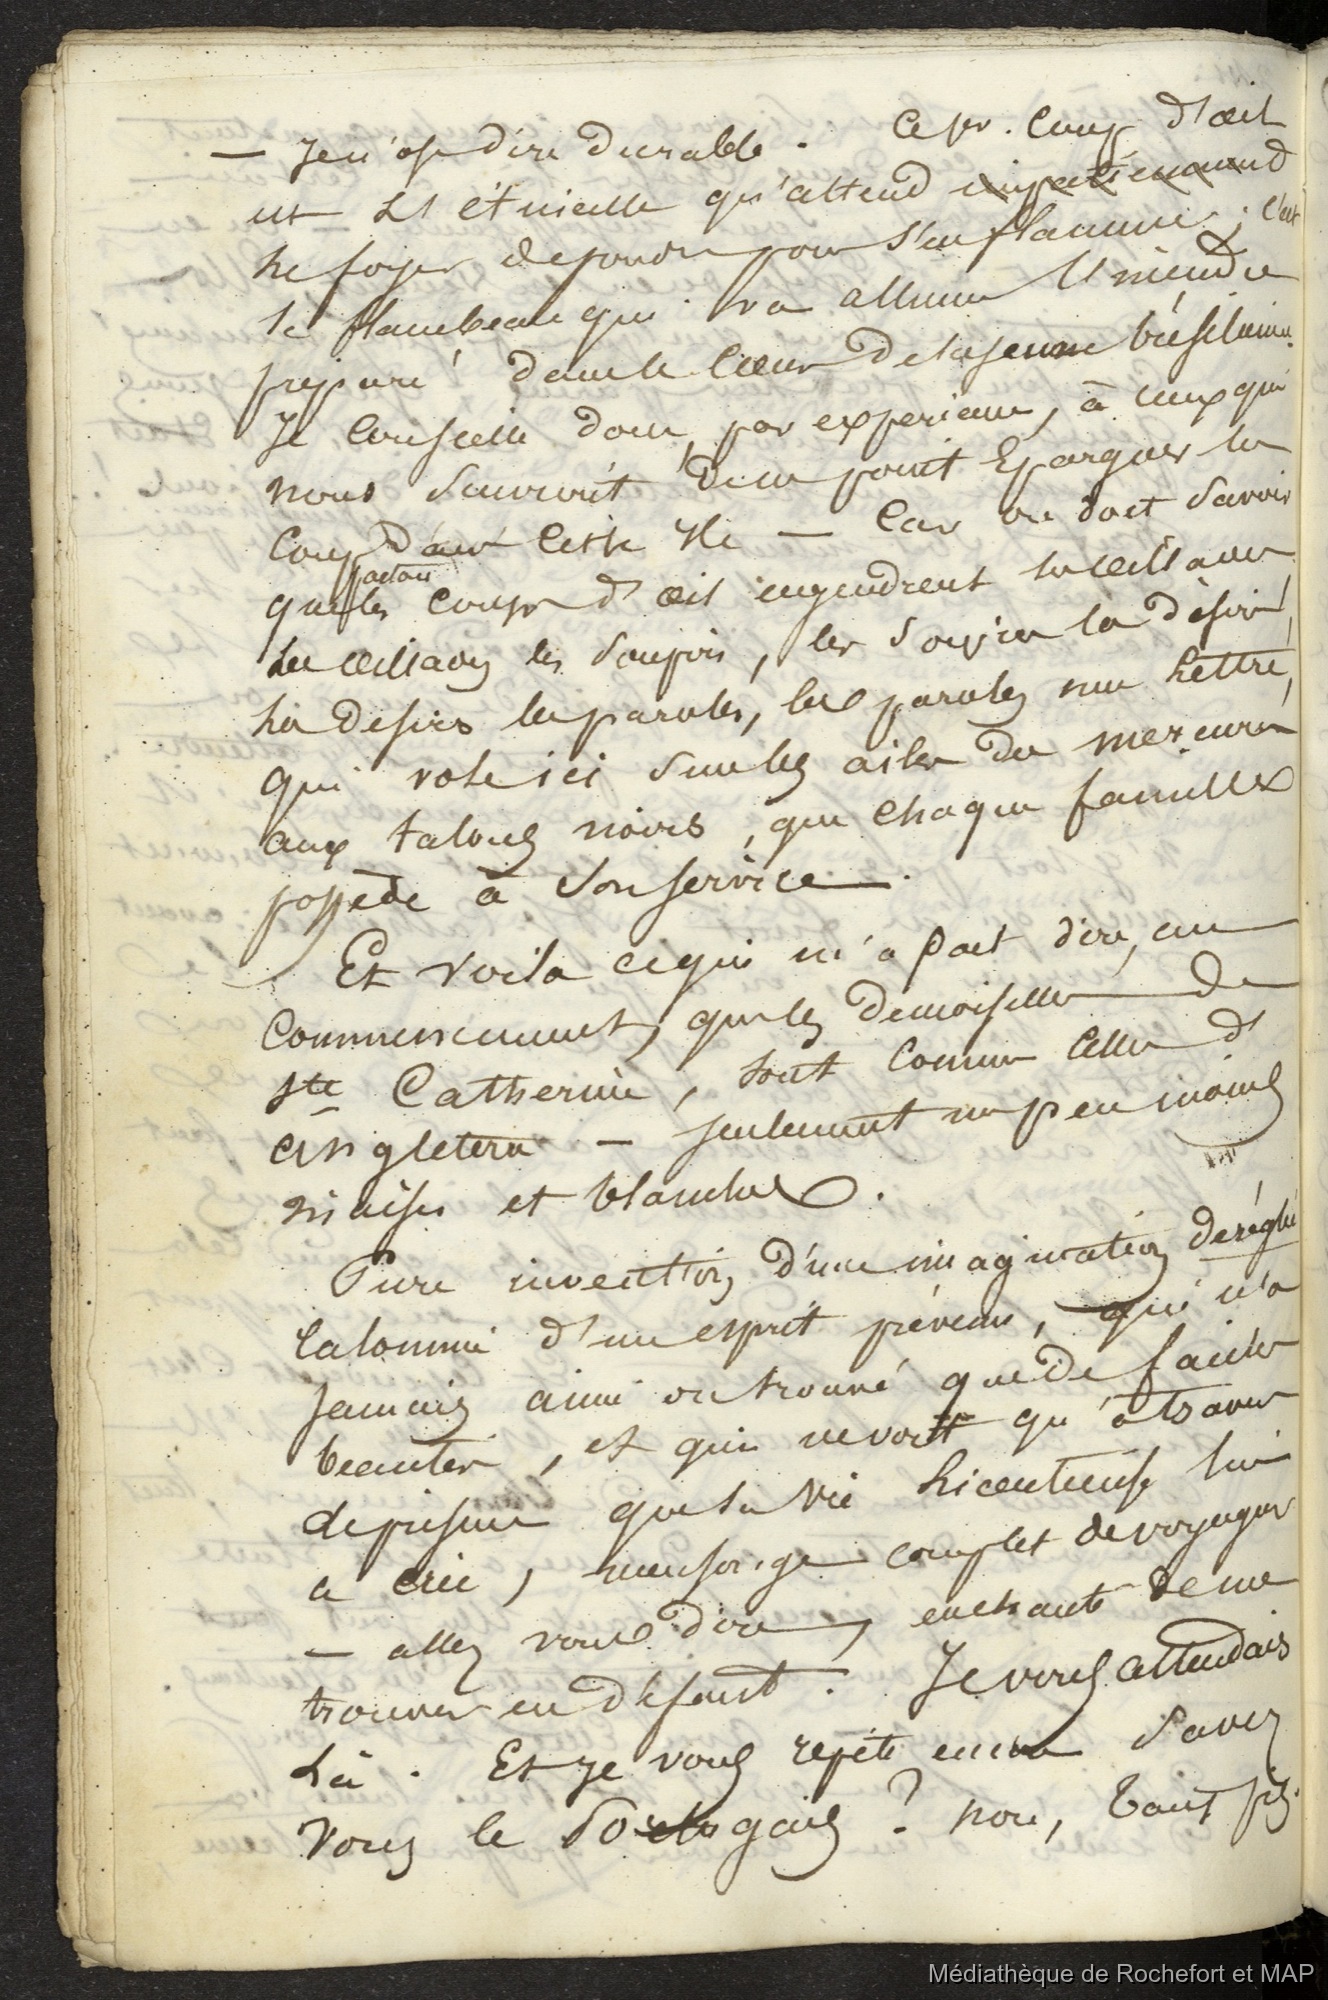 — Je n'ose dire durable. Ce pr. coup d'œil
est l'étincelle qu'attend impatiemment
le foyer de poudre pour s'enflammer; c'est
le flambeau qui va allumer l'incendie
préparé dans le cœur de la jeune brésilienne.
Je conseille donc, par experience, à ceux qui
nous suivront de ne point épargner les
coups d'œil cette île — Car on doit savoir
que les coups d'œil engendrent les œillades
partout
les œillades les soupirs, les soupirs la désirs,
les desirs les paroles, les paroles une lettre,
qui vole ici sur les ailes du mercure
aux talons noirs, que chaque famille
possède à son service.
Et voila ce qui m'a fait dire, au
commencement, que les demoiselles de
Ste Catherine, sont comme celles d'
angleterre — seulement un peu moins
niaises et blanches.
Pure invention d'une imagination déréglée
calomnie d'un esprit prévenu, qui n'a
jamais aimé ou trouvé que de faciles
beautés, et qui ne voit qu'à travers
le prisme que sa vie licentieuse lui
a créé, mensonge complet de voyageur
— allez vous dire, enchanté de me
trouver en défaut. Je vous attendais
là. Et je vous repète encore savez
vous le Portugais? non, tant pis.
Médiathèque de Rochefort et MAP